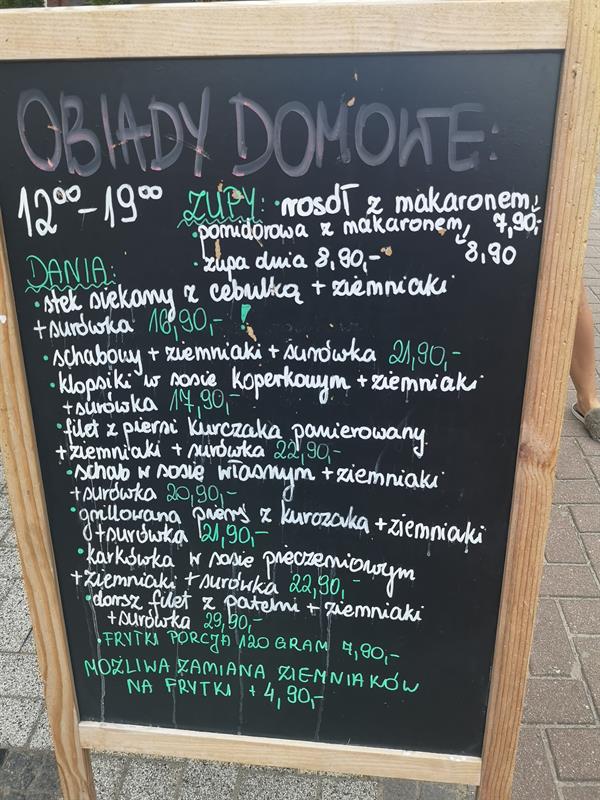 OBIADY DOMOWE:
12⁰⁰-19⁰⁰ ZUPY: • rosół z makaronem,
7,90,-
• pomidorowa z makaronem,
8,90
• zupa dnia 8,90,-
DANIA:
• stek siekany z cebulką + ziemniaki
+ surówka 16,90,-
• schabowy + ziemniaki + surówka 21,90,-
• klopsiki w sosie koperkowym + ziemniaki
+ surówka 17,90,-
• filet z piersi kurczaka panierowany
+ ziemniaki + surówka 22,90,-
• schab w sosie własnym + ziemniaki
+ surówka 20,90,-
• grillowana pierś z kurczaka + ziemniaki
+ surówka 21,90,-
• karkówka w sosie pieczeniowym
+ ziemniaki + surówka 22,90,-
• dorsz filet z patelni + ziemniaki
+ surówka 29,90,-
• FRYTKI PORCJA 120 GRAM 7,90,-
MOŻLIWA ZAMIANA ZIEMNIAKÓW
NA FRYTKI + 4,90,-